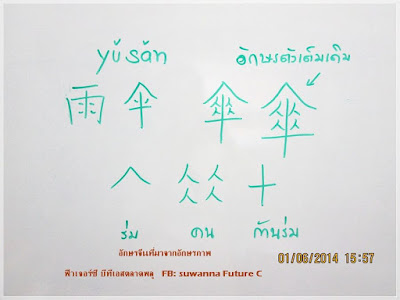 yǔsǎn
อักษรตัวเต็มเดิม
雨 伞 傘
𠆢 人人人人 十
ร่ม คน ก้านร่ม
อักษรจีนที่มาจากอักษรภาพ
ฟิวเจอร์ซี บีทีเอสตลาดพลู FB: suwanna Future C
01/06/2014 15:57